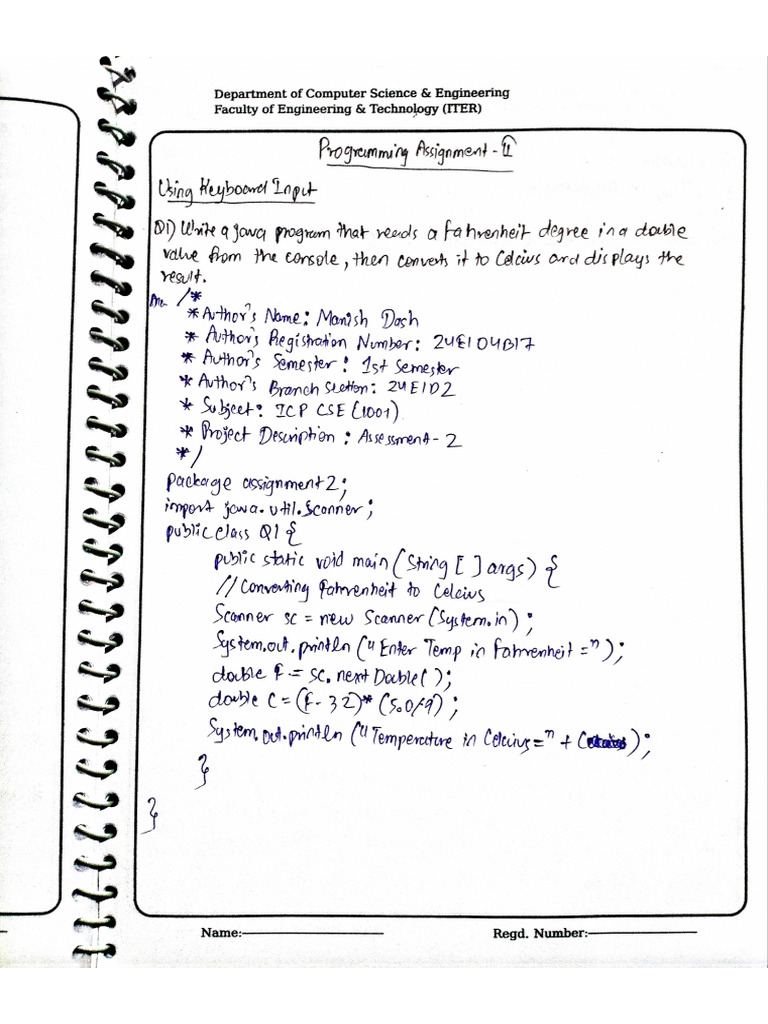 Department of Computer Science & Engineering
Faculty of Engineering & Technology (ITER)
Programming Assignment - II
Using Keyboard Input
Q1) Write a java program that reads a fahrenheit degree in a double
value from the console, then converts it to Celcius and displays the
result.
Ans /*
* Author's Name: Manish Dash
* Author's Registration Number: 24E104B17
* Author's Semester: 1st Semester
* Author's Branch Section: 24E1D2
* Subject: ICP CSE (1001)
* Project Description: Assessment - 2
*/
package assignment2;
import java.util.Scanner;
public class Q1 {
public static void main (String [ ] args) {
// Converting fahrenheit to Celcius
Scanner sc = new Scanner (System.in);
System.out.println ("Enter Temp in Fahrenheit =");
double F = sc.nextDouble();
double C = (F - 32) * (5.0/9);
System.out.println ("Temperature in Celcius=" + C);
}
}
Name:
Regd. Number: